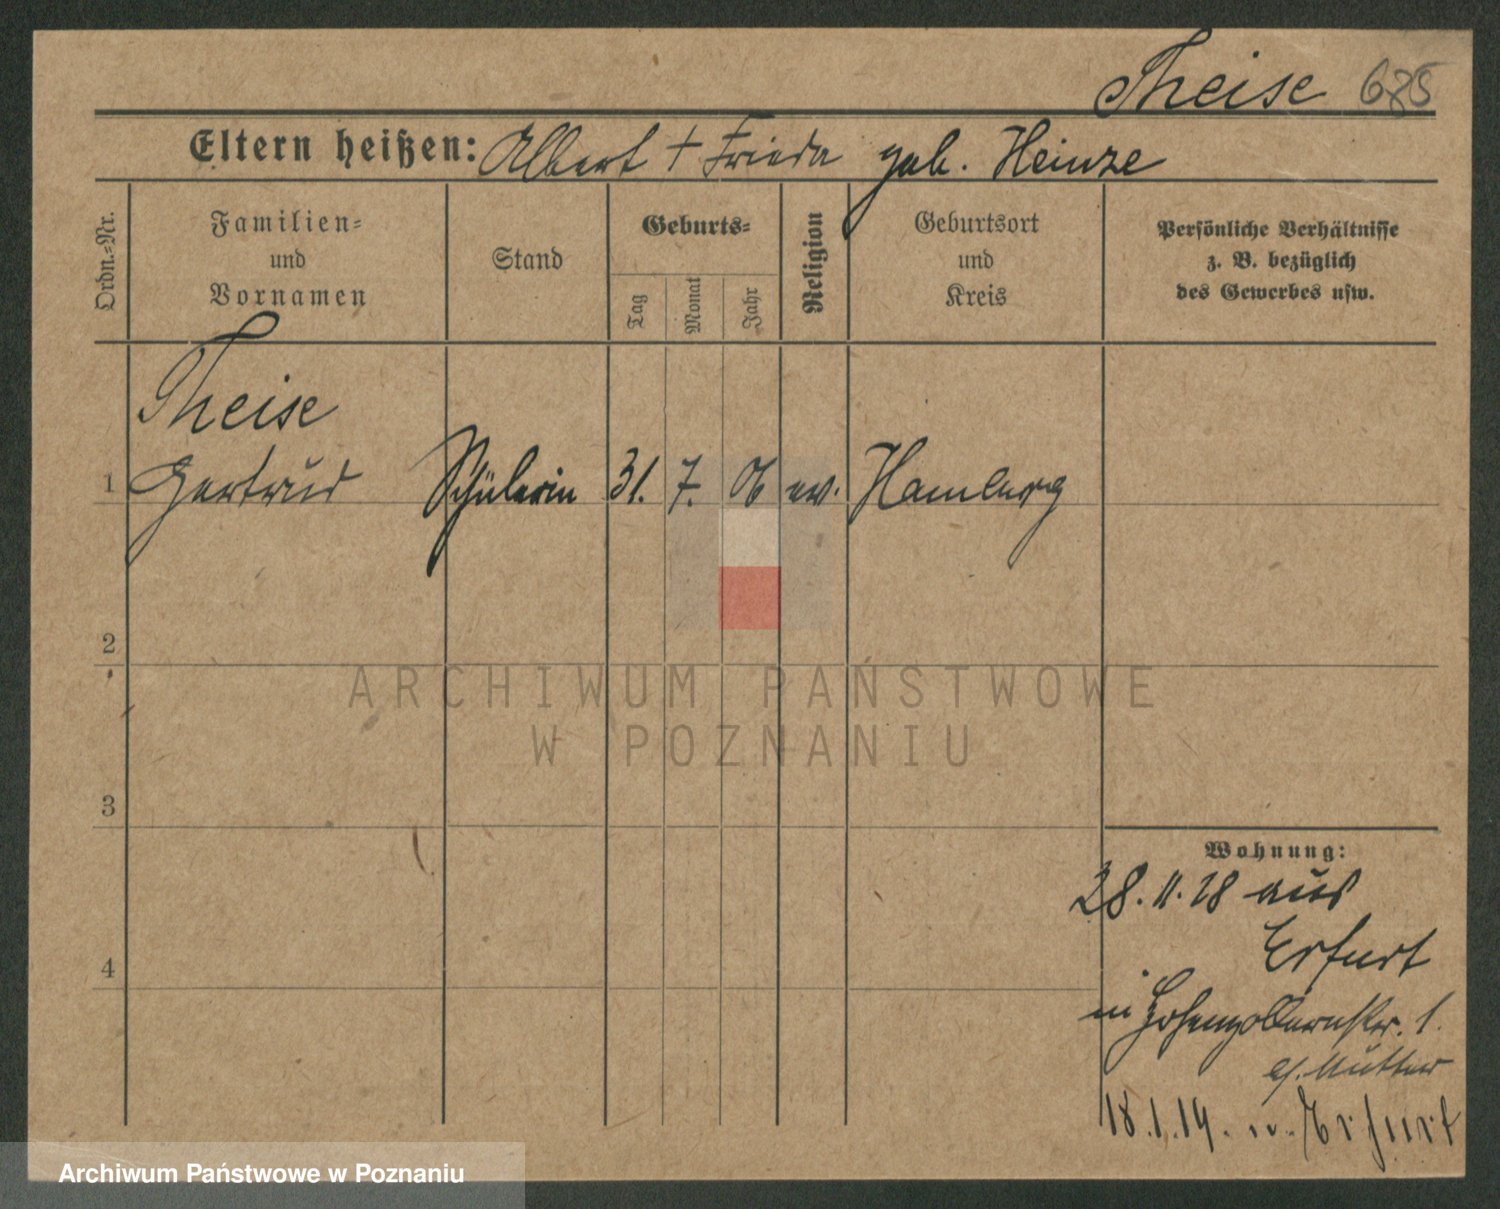 Theise 685
Eltern heißen: Albert + Frieda geb. Heinze
Ordn.=Nr.
Familien=
und
Vornamen
Stand
Geburts=
Tag
Monat
Jahr
Religion
Geburtsort
und
Kreis
Persönliche Verhältnisse
z. B. bezüglich
des Gewerbes usw.
Theise
1 Gertrud Schülerin 31. 7. 06 ev. Hamburg
2
ARCHIWUM PAŃSTWOWE
W POZNANIU
3
Wohnung:
28.11.18 aus
Erfurt
4
in Hohenzollernstr. 1.
Mutter
18.1.19. n. Erfurt
Archiwum Państwowe w Poznaniu